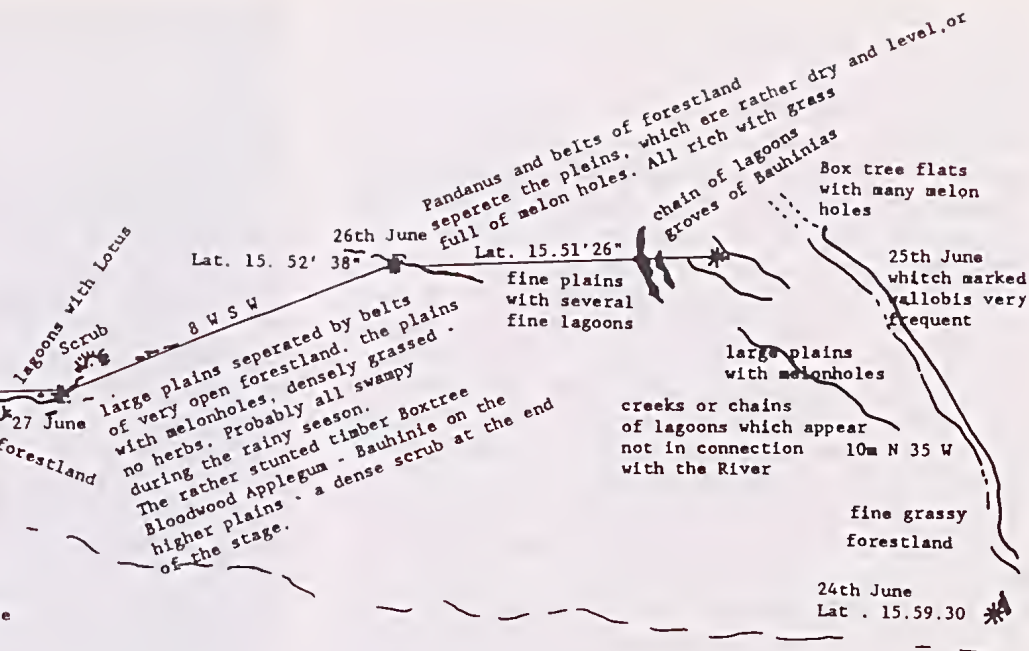 Pandanus and belts of forestland
seperete the pleins, which ere rather dry and level,or
full of melon holes. All rich with grass
chain of lagoons
groves of Bauhinias
Box tree flats
with many melon
holes
26th June
Lat. 15. 52' 38"
Lat. 15.51'26"
25th June
whitch marked
wallobis very
frequent
lagoons with Lotus
Scrub
8 W S W
fine plains
with several
fine lagoons
27 June
forestland
large plains seperated by belts
of very open forestland. the plains
with melonholes, densely grassed -
no herbs. Probably all swampy
during the rainy season.
The rather stunted timber Boxtree
Bloodwood Applegum - Bauhinie on the
higher plains - a dense scrub at the end
of the stage.
large plains
with melonholes
creeks or chains
of lagoons which appear
not in connection
with the River
10m N 35 W
fine grassy
forestland
24th June
Lat . 15.59.30
e